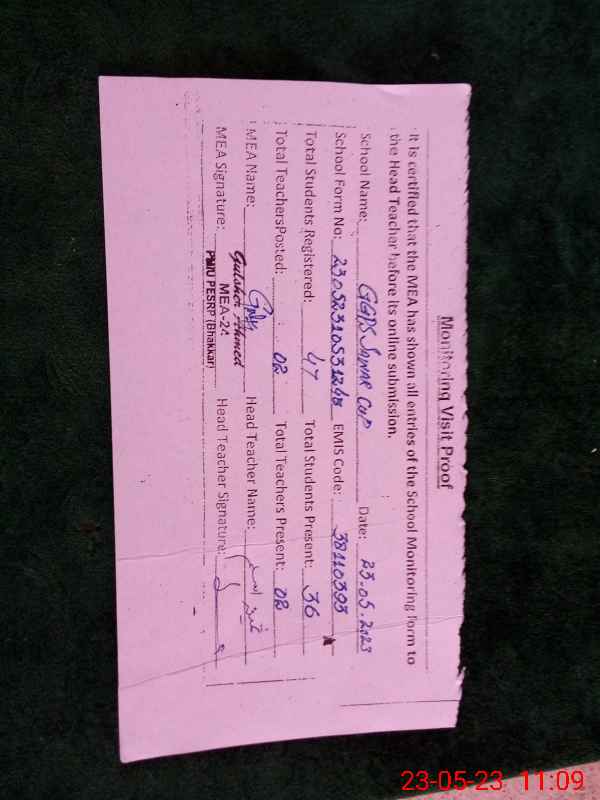 Monitoring Visit Proof
It is certified that the MEA has shown all entries of the School Monitoring Form to
the Head Teacher before its online submission.
School Name: GGPS Date: 23.05.2023
School Form No: EMIS Code: 38110393
Total Students Registered: 47 Total Students Present: 36
Total TeachersPosted: 02 Total Teachers Present: 02
MEA Name: Head Teacher Name:
Gulsher Ahmed
MEA Signature: MEA-24 Head Teacher Signature:
PMIU PESRP (Bhakkar)
23-05-23 11:09